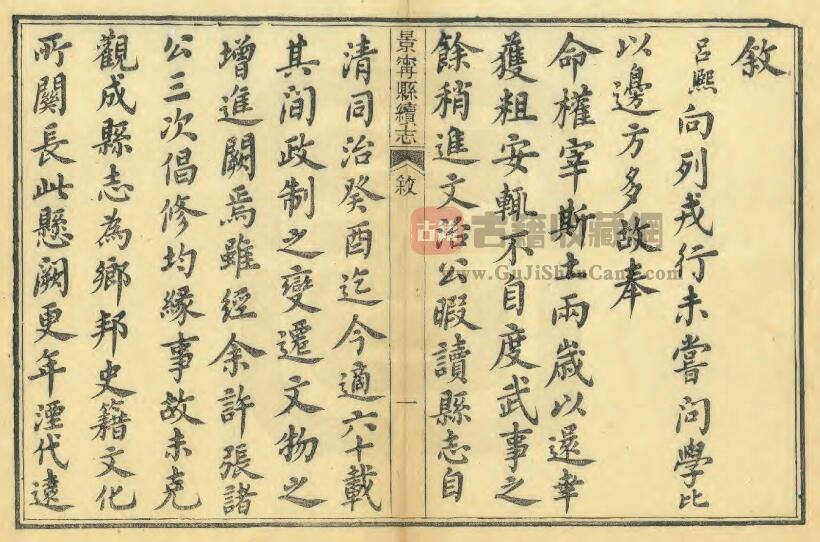 敘
呂熙向列戎行未嘗問學比
以邊方多故奉
命權宰斯土兩歲以還幸
獲粗安輒不自度武事之
餘稍進文治公暇讀縣志自
景甯縣續志 敘 一
清同治癸酉迄今適六十載
其間政制之變遷文物之
增進闕焉雖經余許張諸
公三次倡修均緣事故未克
觀成縣志為鄉邦史籍文化
所關長此懸闕更年湮代遠
古籍 古籍收藏網
www.GuJiShouCang.com